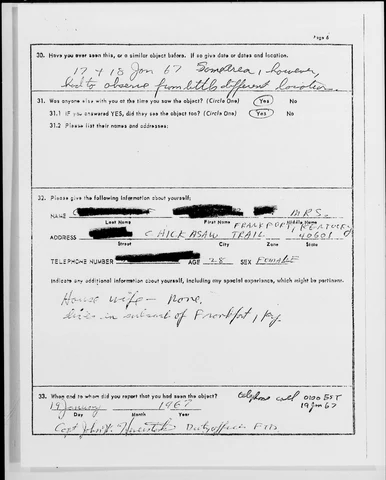 Page 6
30. Have you ever seen this, or a similar object before. If so give date or dates and location.
17 + 18 Jan 67 Same Area, however,
had to observe from little different location.
31. Was anyone else with you at the time you saw the object? (Circle One) Yes No
31.1 IF you answered YES, did they see the object too? (Circle One) Yes No
31.2 Please list their names and addresses:
32. Please give the following information about yourself:
NAME MRS.
Last Name First Name Middle Name
FRANKFORT, KENTUCKY
ADDRESS CHICKASAW TRAIL 40601
Street City Zone State
TELEPHONE NUMBER AGE 28 SEX FEMALE
Indicate any additional information about yourself, including any special experience, which might be pertinent.
House wife - None.
lives in suburb of Frankfort, Ky.
33. When and to whom did you report that you had seen the object? telephone call 0100 EST
19 January 1967 19 Jan 67
Day Month Year
Capt John Duty Officer FTD